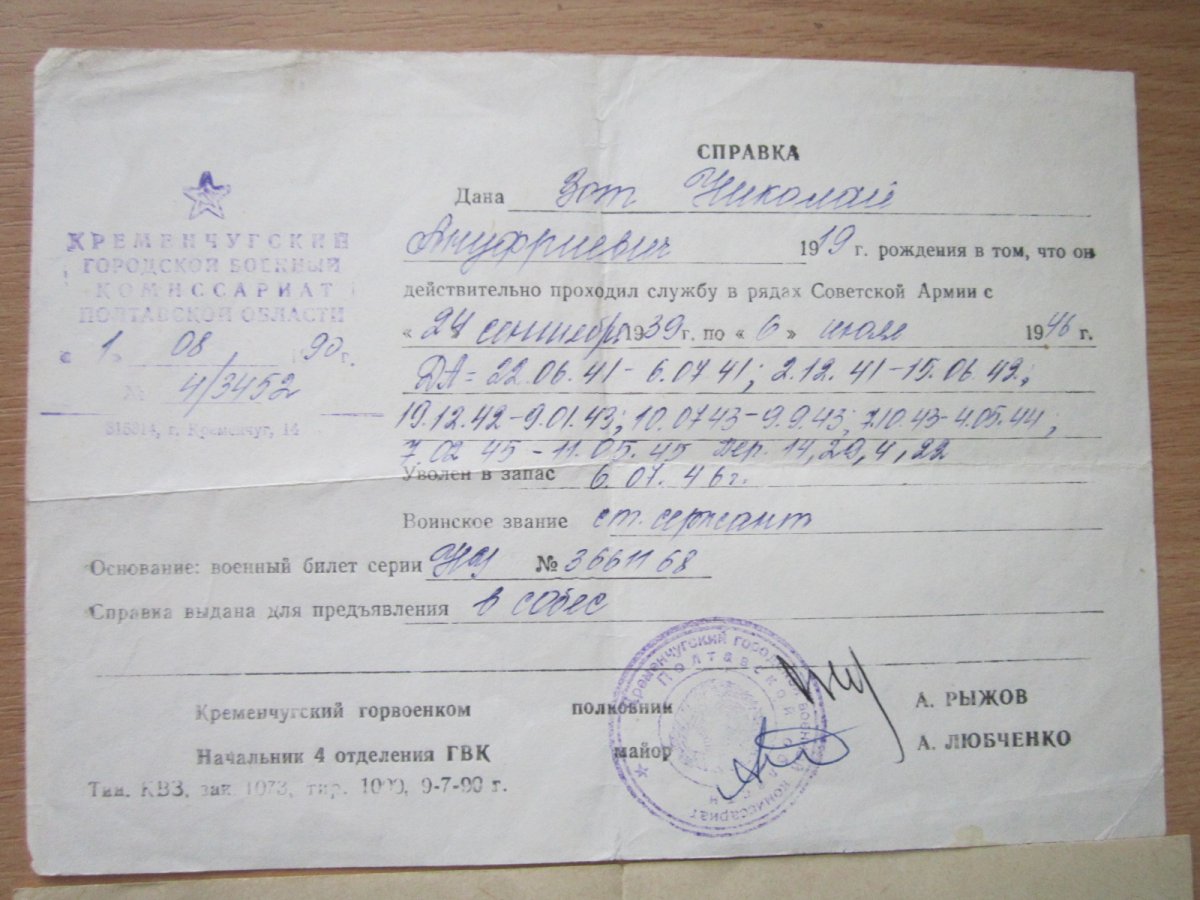 СПРАВКА
Дана Зот Николай
Ануфриевич 1919 г. рождения в том, что он
действительно проходил службу в рядах Советской Армии с
« 24 сентября 1939 г. по « 6 » июля 1946 г.
ДА = 22.06.41 - 6.07 41; 2.12.41 - 15.06.42;
19.12.42 - 9.01.43; 10.0743 - 9.9.43; 7.10.43 - 4.05.44;
7.02 45 - 11.05.45 Пер. 14, 20, 4, 22
Уволен в запас 6.07.46г.
Воинское звание ст. сержант
КРЕМЕНЧУГСКИЙ
ГОРОДСКОЙ ВОЕННЫЙ
КОМИССАРИАТ
ПОЛТАВСКОЙ ОБЛАСТИ
« 1 » 08 1990 г.
№ 4/3452
315314, г. Кременчуг, 14
Основание: военный билет серии НУ № 3661168
Справка выдана для предъявления в собес
Кременчугский горвоенком полковник А. РЫЖОВ
Начальник 4 отделения ГВК майор А. ЛЮБЧЕНКО
Тип. КВЗ, зак. 1073, тир. 1000, 9-7-90 г.
Кременчугский городской военный комиссариат
Полтавской области